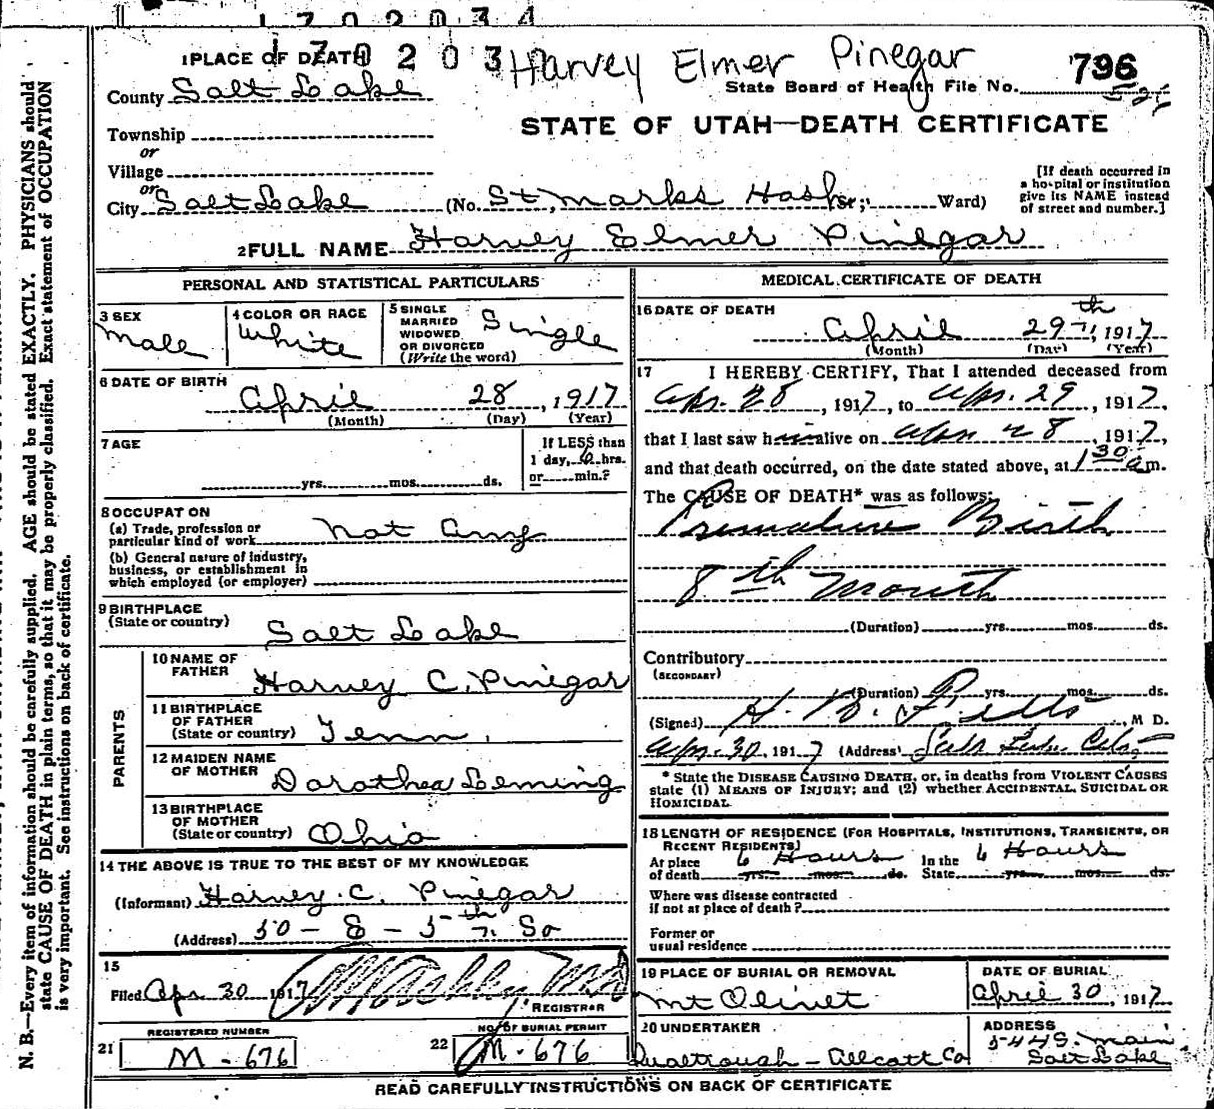 1702034
170203 Harvey Elmer Pinegar
1 PLACE OF DEATH
796
County Salt Lake
State Board of Health File No.
STATE OF UTAH—DEATH CERTIFICATE
Township
or
Village
or
City Salt Lake (No. St. Marks Hosp St.; Ward)
[If death occurred in a hospital or institution give its NAME instead of street and number.]
2 FULL NAME Harvey Elmer Pinegar
PERSONAL AND STATISTICAL PARTICULARS
3 SEX Male
4 COLOR OR RACE White
5 SINGLE MARRIED WIDOWED OR DIVORCED (Write the word) Single
6 DATE OF BIRTH
April 28, 1917
(Month) (Day) (Year)
7 AGE
yrs. mos. ds.
If LESS than 1 day, 6 hrs. or min.?
8 OCCUPATION
(a) Trade, profession or particular kind of work Not any
(b) General nature of industry, business, or establishment in which employed (or employer)
9 BIRTHPLACE
(State or country) Salt Lake
PARENTS
10 NAME OF FATHER Harvey C. Pinegar
11 BIRTHPLACE OF FATHER (State or country) Tenn.
12 MAIDEN NAME OF MOTHER Dorothea Leming
13 BIRTHPLACE OF MOTHER (State or country) Ohio
14 THE ABOVE IS TRUE TO THE BEST OF MY KNOWLEDGE
(Informant) Harvey C. Pinegar
(Address) 50 - E - 5th So
15
Filed Apr 30 1917
REGISTRAR
REGISTERED NUMBER
21 M - 676
NO. OF BURIAL PERMIT
22 M - 676
MEDICAL CERTIFICATE OF DEATH
16 DATE OF DEATH
April 29th, 1917
(Month) (Day) (Year)
17 I HEREBY CERTIFY, That I attended deceased from
Apr. 28, 1917, to Apr. 29, 1917,
that I last saw him alive on Apr 28, 1917,
and that death occurred, on the date stated above, at 1 30 a m.
The CAUSE OF DEATH* was as follows:
Premature Birth
8th Month
(Duration) yrs. mos. ds.
Contributory
(SECONDARY)
(Duration) yrs. mos. ds.
(Signed) H. B. , M D.
Apr. 30, 1917 (Address) Salt Lake City
* State the DISEASE CAUSING DEATH, or, in deaths from VIOLENT CAUSES
state (1) MEANS OF INJURY; and (2) whether ACCIDENTAL, SUICIDAL OR
HOMICIDAL
18 LENGTH OF RESIDENCE (FOR HOSPITALS, INSTITUTIONS, TRANSIENTS, OR
RECENT RESIDENTS)
At place of death 6 Hours yrs. mos. ds. In the State 6 Hours yrs. mos. ds.
Where was disease contracted
if not at place of death?
Former or
usual residence
19 PLACE OF BURIAL OR REMOVAL
Mt Olivet
DATE OF BURIAL
April 30, 1917
20 UNDERTAKER
Qualtrough - Allcott Co
ADDRESS
544 S. Main
Salt Lake
READ CAREFULLY INSTRUCTIONS ON BACK OF CERTIFICATE
N. B.—Every item of information should be carefully supplied. AGE should be stated EXACTLY. PHYSICIANS should
state CAUSE OF DEATH in plain terms, so that it may be properly classified. Exact statement of OCCUPATION
is very important. See instructions on back of certificate.